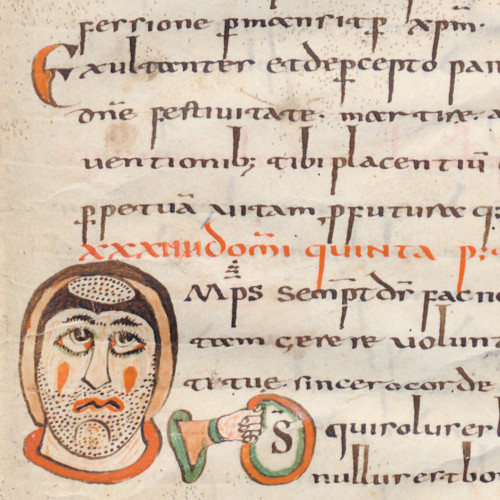 fersione ꝑmansit ꝑ xp̄m.
Exultanter et deꝑcepto pan
dn̄e festiuitate. martiræ. a
uentionib; tibi placentiū
ꝑpetuā uitam, ꝓfuturæ q:
XXXIIII dom̄i quinta p:
Omps semp̄t ds̄ fac no
tam gerere uolunt
ti tue sincero corde
D s̄ qui solus es b
nullus est bo